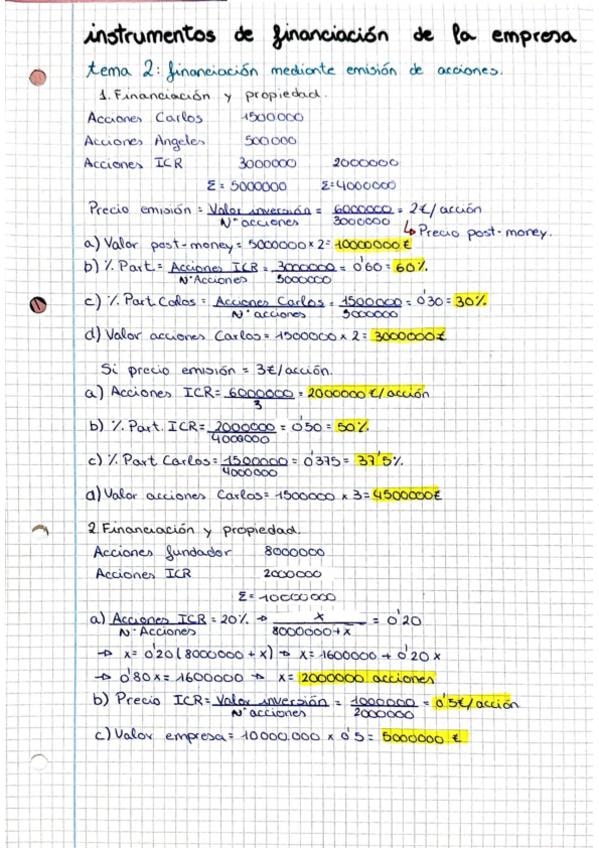 instrumentos de financiación de la empresa
tema 2: financiación mediante emisión de acciones.
1. Financiación y propiedad.
Acciones Carlos 1500000
Acciones Angeles 500000
Acciones ICR 3000000 2000000
Σ = 5000000 Σ=4000000
Precio emisión = Valor inversión / Nº acciones = 6000000 / 3000000 = 2€/acción
↳ Precio post-money.
a) Valor post-money = 5000000 x 2 = 10000000 €
b) % Part. = Acciones ICR / Nº Acciones = 3000000 / 5000000 = 0'60 = 60%
c) % Part Calos = Acciones Carlos / Nº acciones = 1500000 / 5000000 = 0'30 = 30%
d) Valor acciones Carlos = 1500000 x 2 = 3000000€
Si precio emisión = 3€/acción.
a) Acciones ICR = 6000000 / 3 = 2000000 €/acción
b) % Part. ICR = 2000000 / 4000000 = 0'50 = 50%
c) % Part Carlos = 1500000 / 4000000 = 0'375 = 37'5%
d) Valor acciones Carlos = 1500000 x 3 = 4500000€
2. Financiación y propiedad.
Acciones fundador 8000000
Acciones ICR 2000000
Σ = 10000000
a) Acciones ICR / Nº Acciones = 20% → x / 8000000+x = 0'20
→ x = 0'20 (8000000 + x) → x = 1600000 + 0'20 x
→ 0'80x = 1600000 → x = 2000000 acciones
b) Precio ICR = Valor inversión / Nº acciones = 1000000 / 2000000 = 0'5€/acción
c) Valor empresa = 10000.000 x 0'5 = 5000000 €